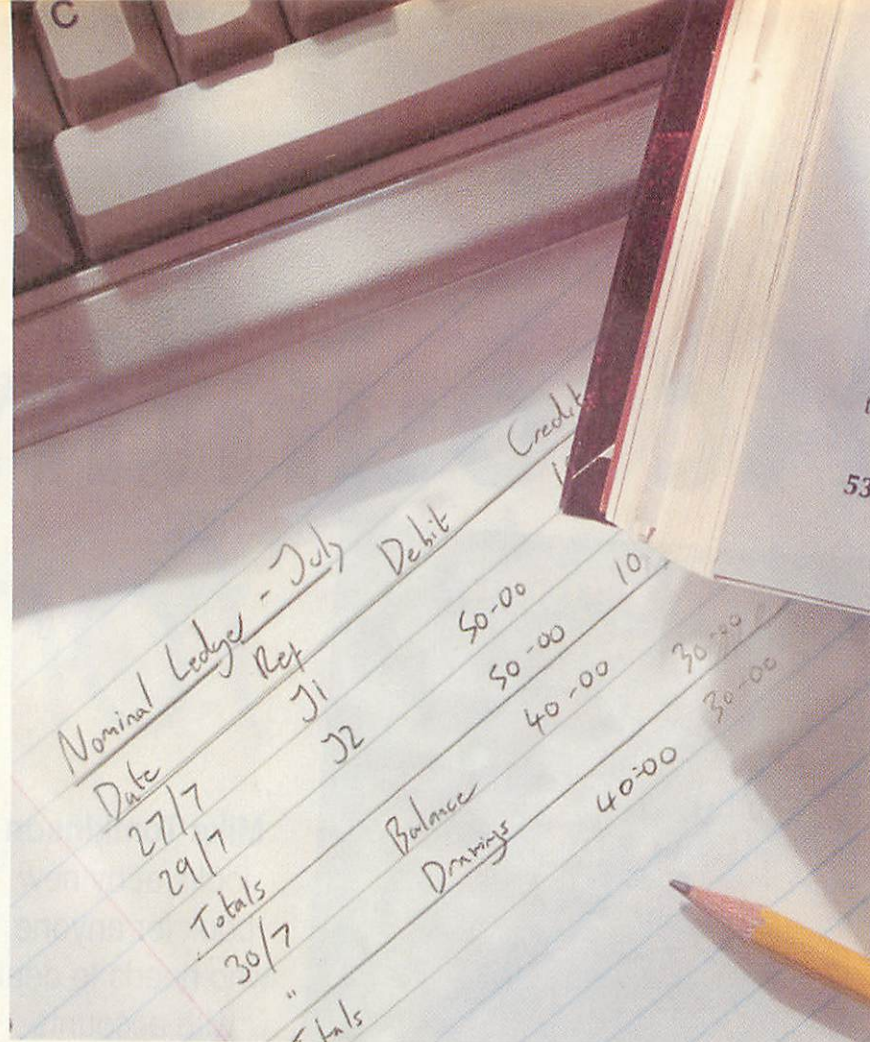 C
53
Nominal Ledger - July
Date Ref Debit Credit
27/7 J1
29/7 J2 50-00
Totals 50-00 10
30/7 Balance 40-00
" Drawings 30-00
Totals 40-00 30-00